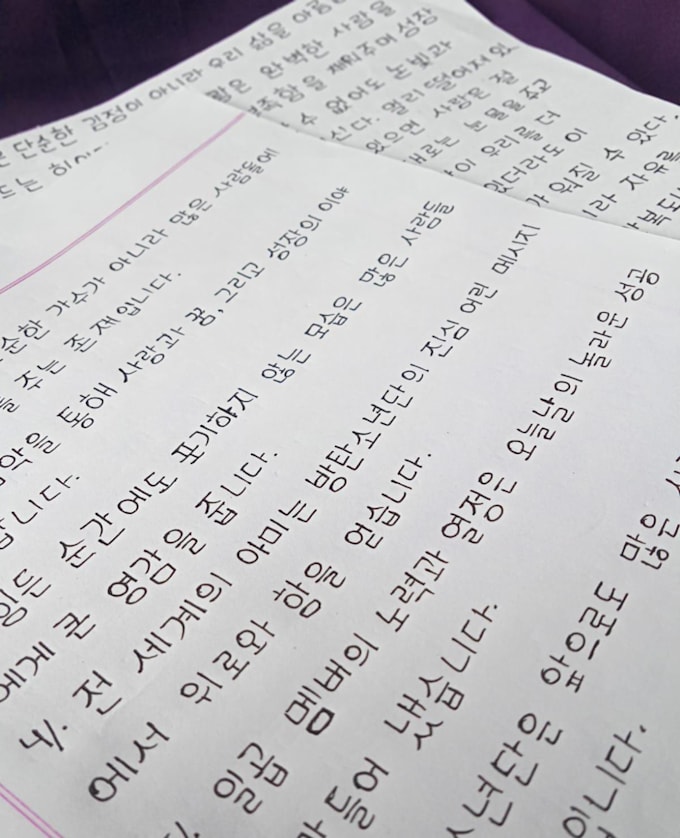 단순한 감정이 아니라 우리 삶을 아름
드는
은 완벽한 사람을
족함을 채워주며 성장
수 없어도 눈빛과
신다. 멀리 떨어져 있
있으면 사랑은 잘
대로는 눈물을 주고
이 우리를 더
있더라도 이
가 워질 수 있다.
니라 자유를
순한 가수가 아니라 많은 사람들에
를 주는 존재입니다.
악을 통해 사랑과 꿈, 그리고 성장의 이야
합니다.
힘든 순간에도 포기하지 않는 모습은 많은 사람들
에게 큰 영감을 줍니다.
4/. 전 세계의 아미는 방탄소년단의 진심 어린 메시지
에서 위로와 함을 얻습니다.
/. 일곱 멤버의 노력과 열정은 오늘날의 놀라운 성공
만들어 냈습니다.
년단은 앞으로도 많은
입니다.